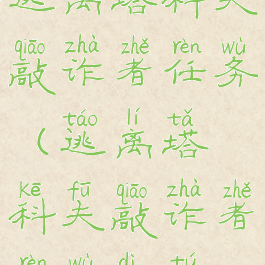 qiāo zhà zhě rèn wù
敲诈者任务
táo lí tǎ
（逃离塔
Kē fū qiāo zhà zhě
科夫敲诈者
rèn wù dì tú